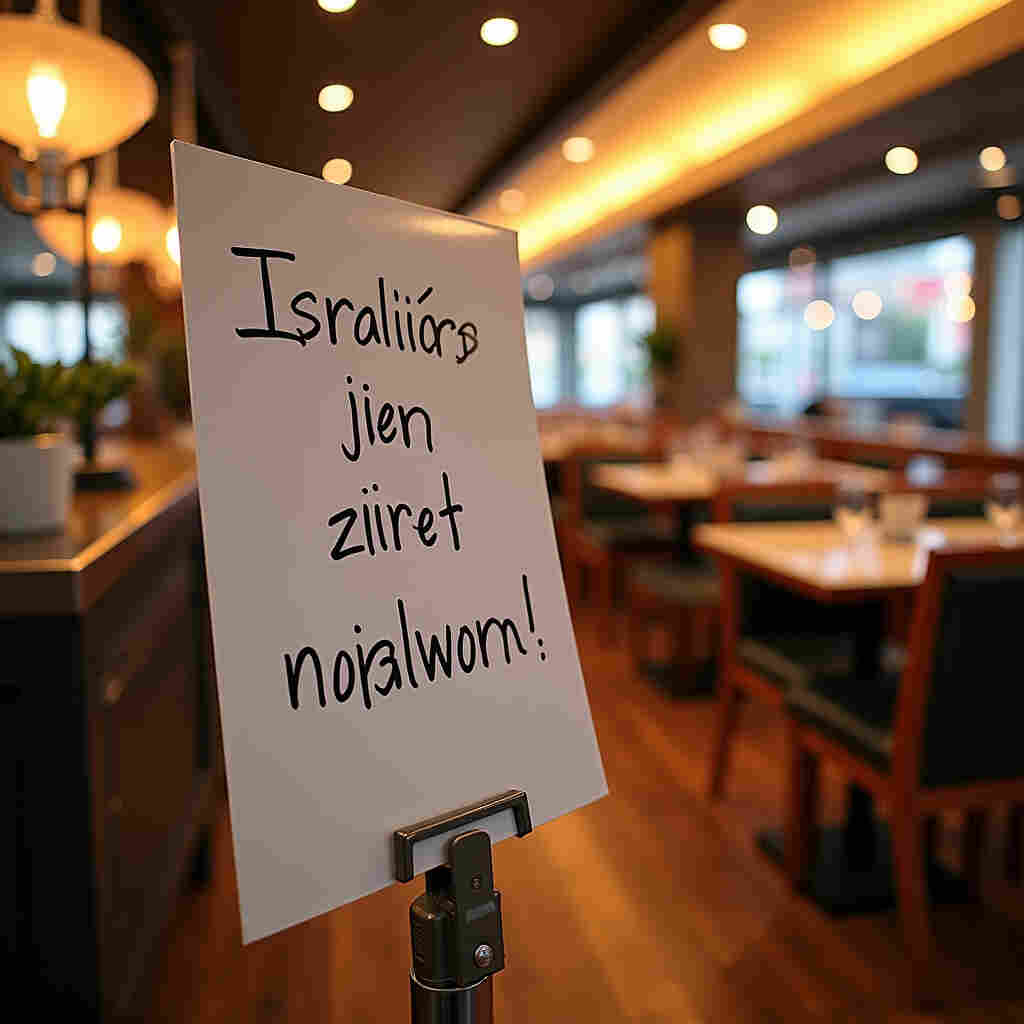 Israliiórs
jien
ziiret
nojsalwom!